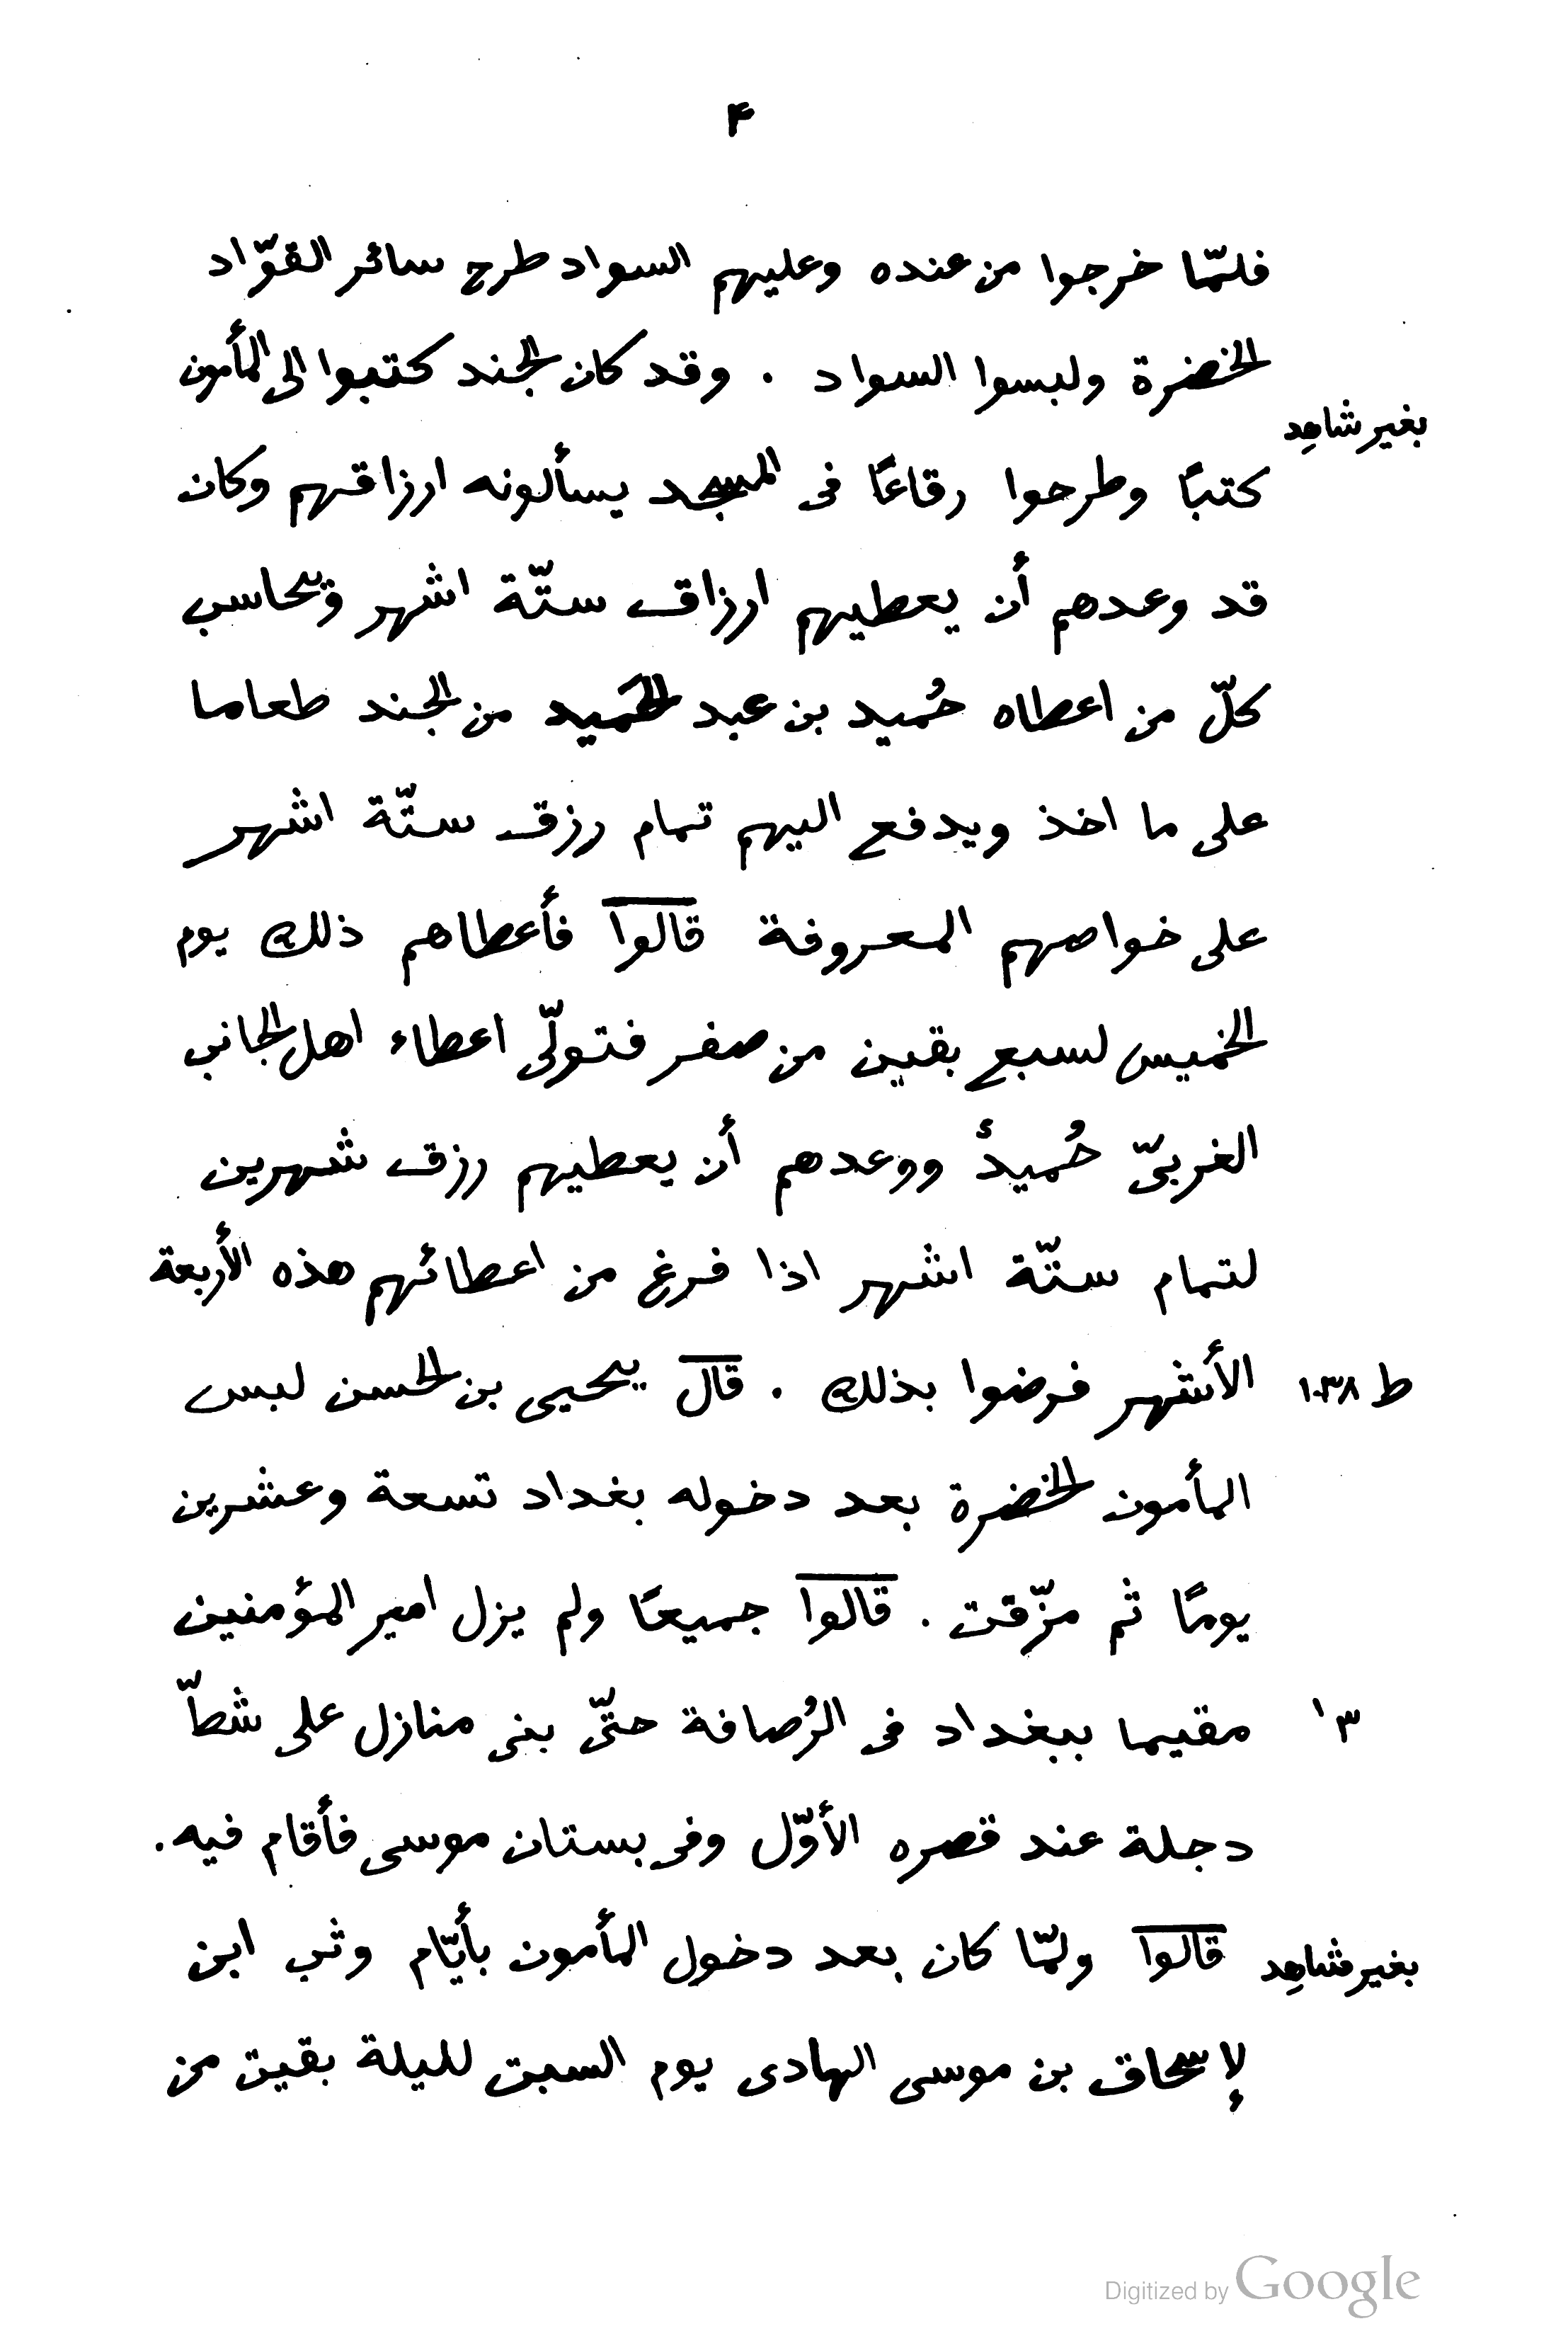 ۴
فلمّا خرجوا من عنده وعليهم السواد طرح سائر القوّاد
الخضرة ولبسوا السواد . وقد كان الجند كتبوا الى المأمون
بغير شاهد
كتبًا وطرحوا رقاعًا فى المسجد يسألونه ارزاقهم وكان
قد وعدهم أن يعطيهم ارزاق ستّة اشهر ويحاسب
كلّ من اعطاه حُميد بن عبد الحَميد من الجند طعاما
على ما اخذ ويدفع اليهم تمام رزق ستّة اشهر
على خواصهم المعروفة قالوا فأعطاهم ذلك يوم
الخميس لسبع بقين من صفر فتولّى اعطاء اهل الجانب
الغربىّ حُميدٌ ووعدهم أن يعطيهم رزق شهرين
لتمام ستّة اشهر اذا فرغ من اعطائهم هذه الأربعة
ط ١٠٣٨ الأشهر فرضوا بذلك . قال يحيى بن الحسن لبس
المأمون الخضرة بعد دخوله بغداد تسعة وعشرين
يومًا ثم مزّقت . قالوا جميعًا ولم يزل امير المؤمنين
٣ ا مقيما ببغداد فى الرُصافة حتّى بنى منازل على شطّ
دجلة عند قصره الأوّل وفى بستان موسى فأقام فيه .
بغير شاهد قالوا ولمّا كان بعد دخول المأمون بأيّام وثب ابن
لإسحاق بن موسى الهادى يوم السبت لليلة بقيت من
Digitized by Google